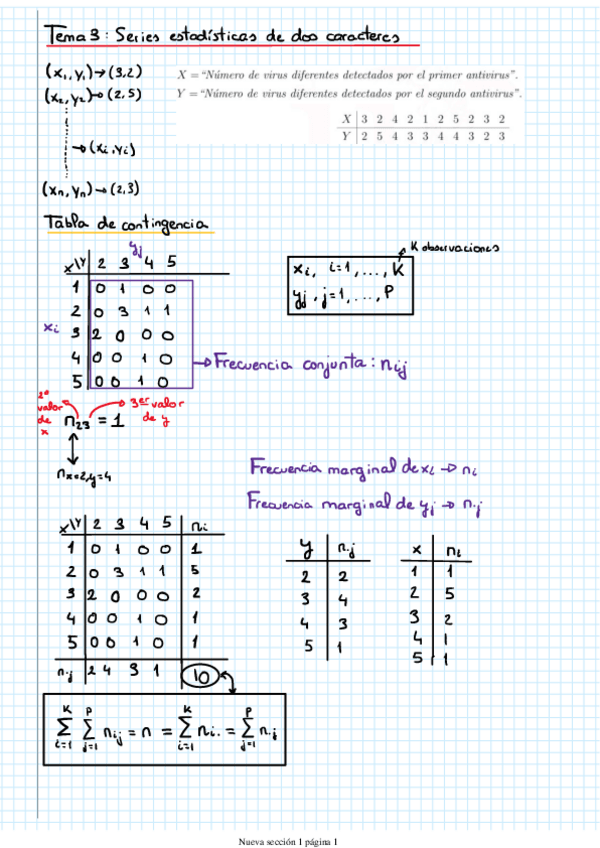 Tema 3: Series estadísticas de dos caracteres
(x₁, y₁) → (3,2)
X = "Número de virus diferentes detectados por el primer antivirus".
(x₂, y₂) → (2,5)
Y = "Número de virus diferentes detectados por el segundo antivirus".
X | 3 2 4 2 1 2 5 2 3 2
Y | 2 5 4 3 3 4 4 3 2 3
→ (xᵢ, yᵢ)
(xₙ, yₙ) → (2,3)
Tabla de contingencia
yⱼ
K observaciones
X\Y | 2 3 4 5
xᵢ, i=1, ..., K
yⱼ, j=1, ..., P
1 | 0 1 0 0
2 | 0 3 1 1
xᵢ
3 | 2 0 0 0
4 | 0 0 1 0
5 | 0 0 1 0
→ Frecuencia conjunta: nᵢⱼ
2º valor de x
3er valor de y
n₂₃ = 1
nₓ₌₂,ᵧ₌₄
Frecuencia marginal de xᵢ → nᵢ
Frecuencia marginal de yⱼ → n.ⱼ
X\Y | 2 3 4 5 | nᵢ
1 | 0 1 0 0 | 1
2 | 0 3 1 1 | 5
3 | 2 0 0 0 | 2
4 | 0 0 1 0 | 1
5 | 0 0 1 0 | 1
n.ⱼ | 2 4 3 1 | 10
y | n.ⱼ
2 | 2
3 | 4
4 | 3
5 | 1
x | nᵢ
1 | 1
2 | 5
3 | 2
4 | 1
5 | 1
∑ᵢ₌₁ᴷ ∑ⱼ₌₁ᴾ nᵢⱼ = n = ∑ᵢ₌₁ᴷ nᵢ. = ∑ⱼ₌₁ᴾ n.ⱼ
Nueva sección 1 página 1